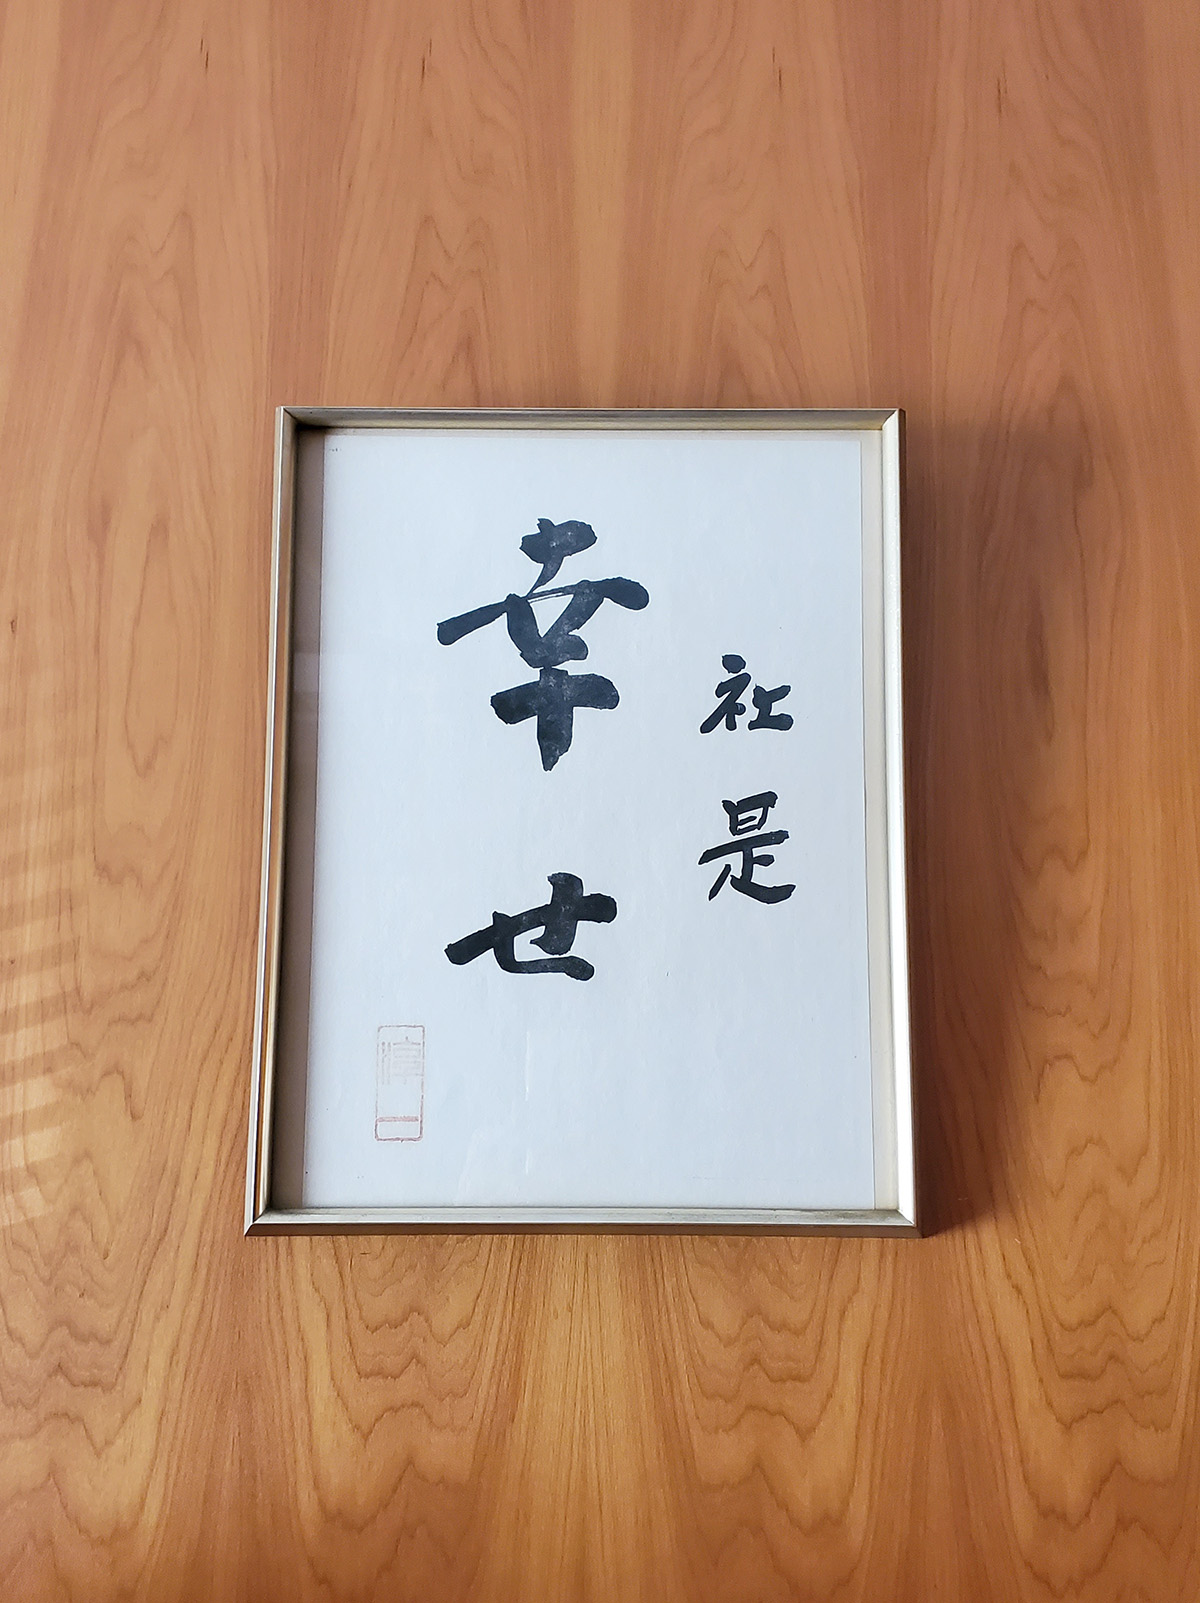 社是
幸せ